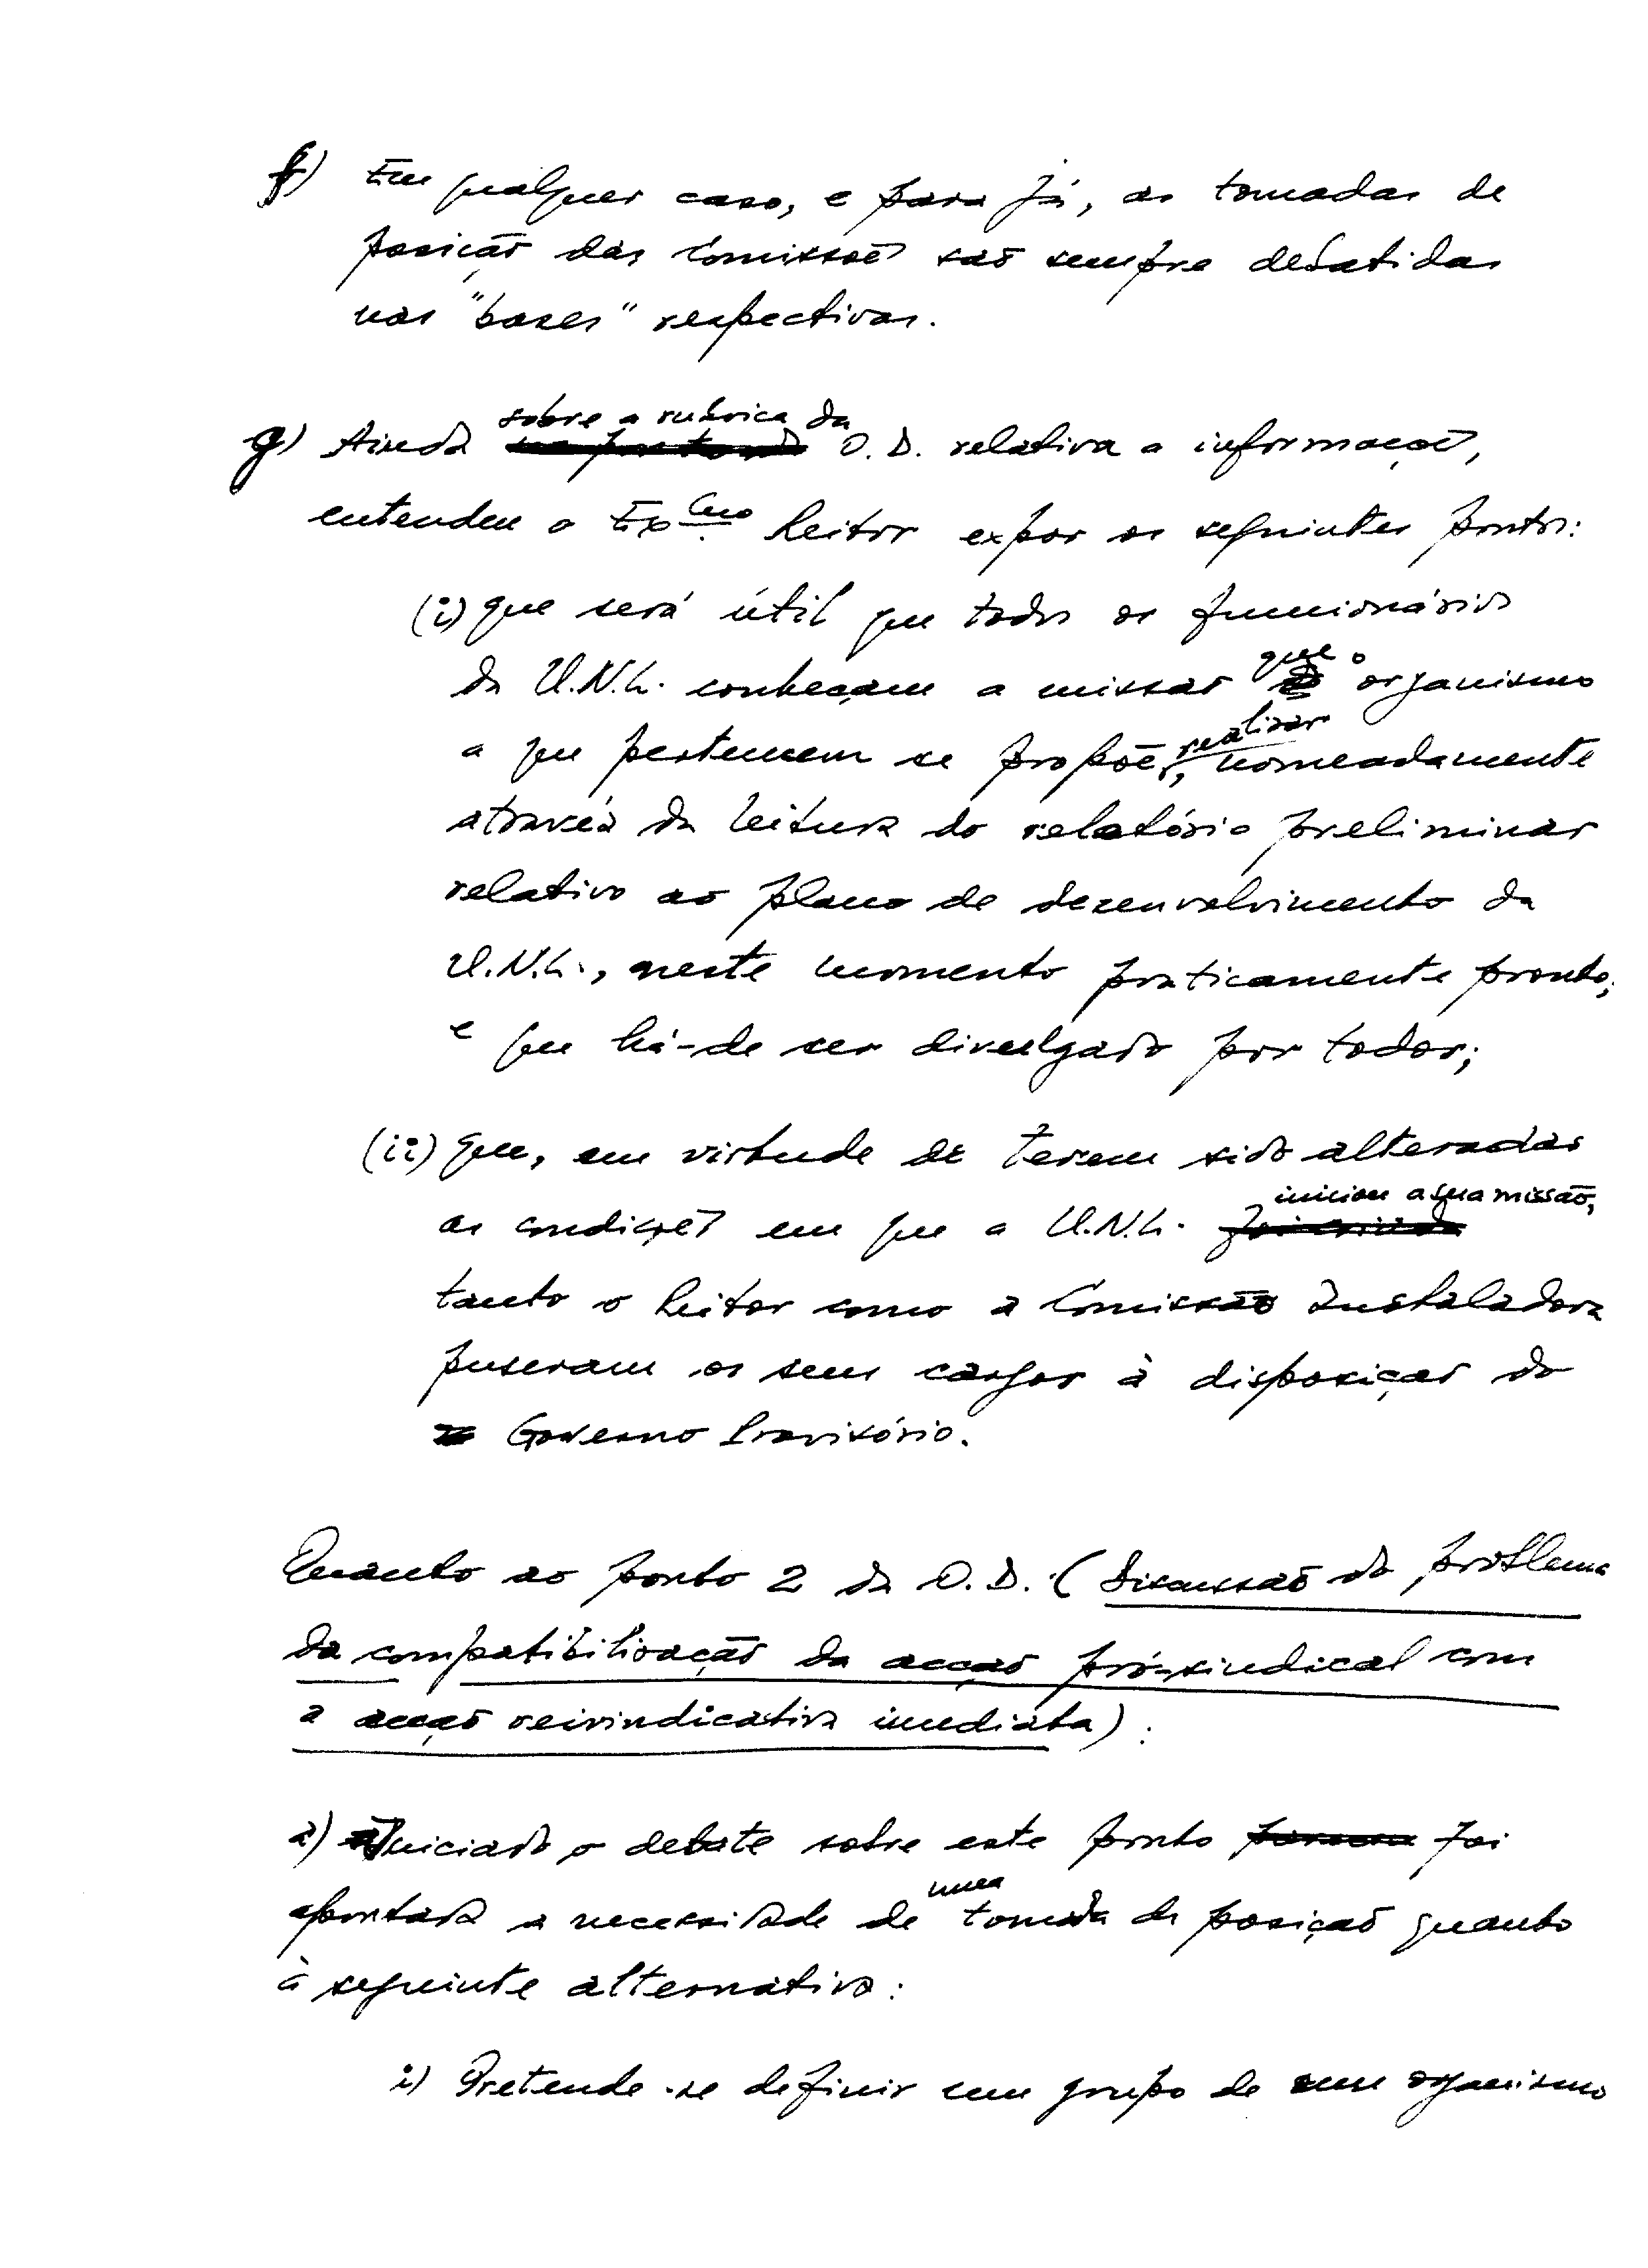 f) Em qualquer caso, e para já, as tomadas de
posição das Comissões são sempre debatidas
nas "bases" respectivas.
g) Ainda sobre a rubrica da O. D. relativa a informações,
entendeu o Ex.mo Reitor expor os seguintes pontos:
(i) que será útil que todos os funcionários
da U.N.L. conheçam a missão que o organismo
a que pertencem se propõe realizar, nomeadamente
através da leitura do relatório preliminar
relativo ao plano de desenvolvimento da
U.N.L., neste momento praticamente pronto,
e que há-de ser divulgado por todos;
(ii) que, em virtude de terem sido alteradas
as condições em que a U.N.L. iniciou a sua missão,
tanto o Reitor como a Comissão Instaladora
puseram os seus cargos à disposição do
Governo Provisório.
Quanto ao ponto 2 da O. D. (Discussão do problema
da compatibilização da acção pró-sindical com
a acção reivindicativa imediata):
a) Iniciado o debate sobre este ponto foi
apontada a necessidade de uma tomada de posição quanto
à seguinte alternativa:
i) Pretende-se definir um grupo de um organismo